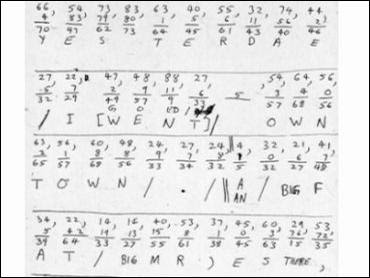 66 54 73 83 63 40 55 32 74 44
4 83 79 80 1 5 6 11 56 2
70 47 62 73 64 45 61 43 40 46
Y E S T E R D A E
27 22 47 48 88 27 54 64 56
5 7 2 9 11 6 5 3 4 0
32 29 49 57 99 33 57 68 56
G ED/
/ I [ W E N T ] / O W N
63 56 60 48 24 27 24 4 32 21 41
2 1 8 8 9 7 8 5 0 6 7
65 57 68 56 33 34 32 32 27 48
T O W N / . / A / BIG F
AN
34, 22, 14 14 40 53 37 45 60 29 53
5 42 19 13 15 8 1 0 3
39 64 33 27 55 61 38 45 63 15 35
A T / BIG M R ) E S THERE,